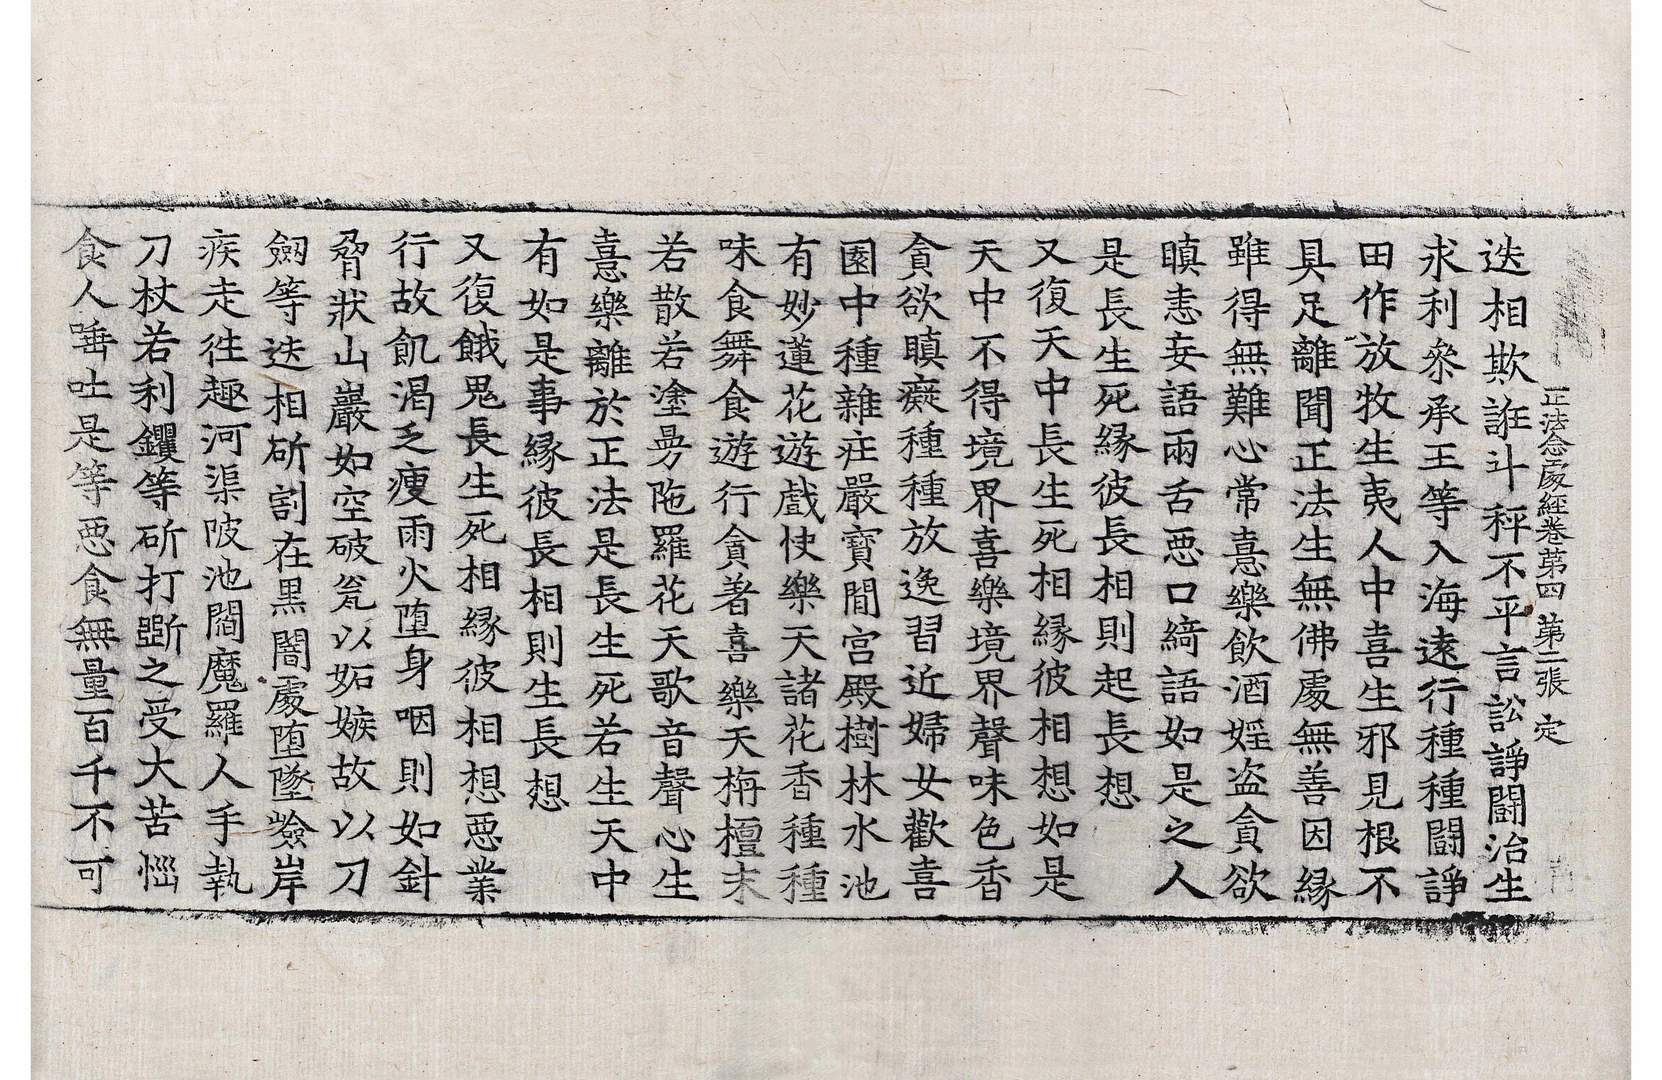 正法念處經卷第四 第二張 定
迭相欺誑斗秤不平言訟諍鬪治生
求利叅承王等入海遠行種種鬪諍
田作放牧生夷人中喜生邪見根不
具足離聞正法生無佛處無善因緣
雖得無難心常憙樂飲酒婬盜貪欲
瞋恚妄語兩舌惡口綺語如是之人
是長生死緣彼長相則起長想
又復天中長生死相緣彼相想如是
天中不得境界喜樂境界聲味色香
貪欲瞋癡種種放逸習近婦女歡喜
園中種雜莊嚴寶間宮殿樹林水池
有妙蓮花遊戲快樂天諸花香種種
味食舞食遊行貪著喜樂天栴檀末
若散若塗㝵陁羅花天歌音聲心生
憙樂離於正法是長生死若生天中
有如是事緣彼長相則生長想
又復餓鬼長生死相緣彼相想惡業
行故飢渴乏瘦雨火堕身咽則如針
脅狀山巖如空破瓮以妬嫉故以刀
劒等迭相斫割在黑闇處堕墜嶮岸
疾走往趣河渠陂池閻魔羅人手執
刀杖若利钁等斫打斲之受大苦惱
食人唾吐是等惡食無量百千不可